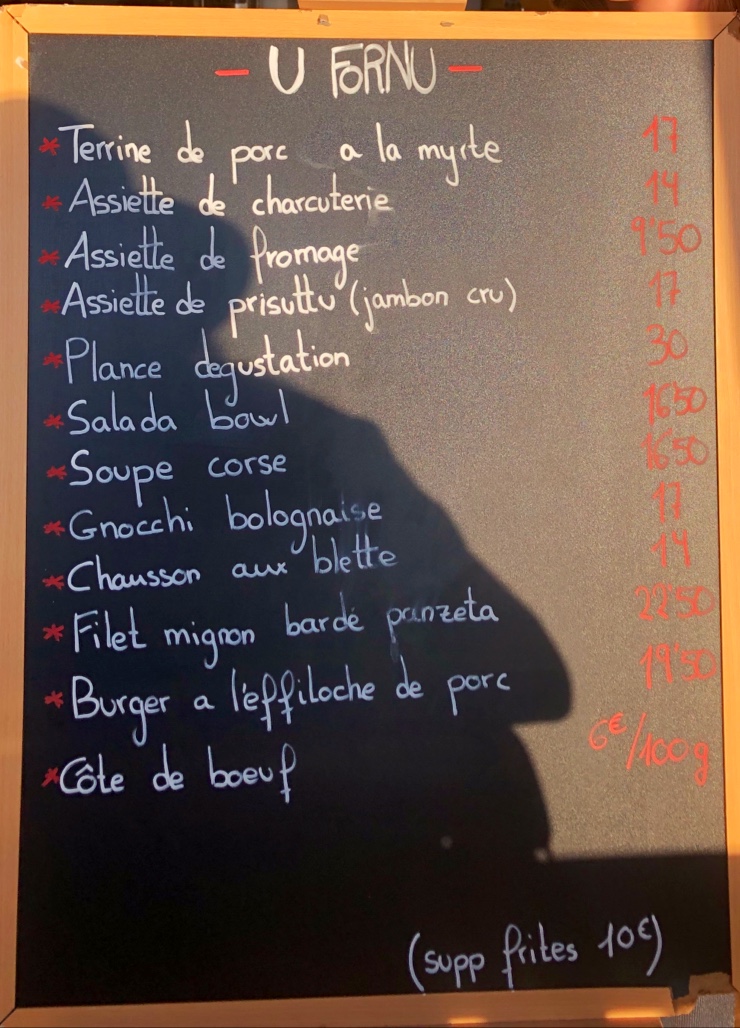 - U FORNU -
* Terrine de porc a la myrte 17
* Assiette de charcuterie 14
* Assiette de fromage 9'50
* Assiette de prisuttu (jambon cru) 17
* Plance degustation 30
* Salada bowl 16'50
* Soupe corse 16'50
* Gnocchi bolognaise 17
* Chausson aux blette 14
* Filet mignon bardé panzeta 22'50
* Burger a l'effiloche de porc 19'50
* Côte de boeuf 6€/100g
(supp frites 10€)